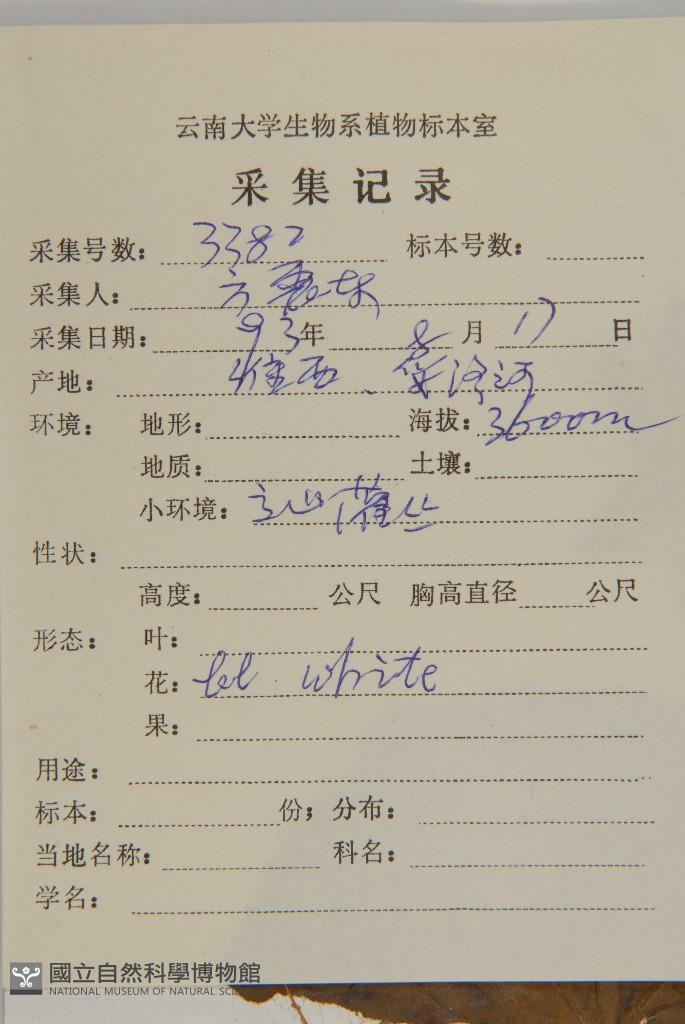 云南大学生物系植物标本室
采集记录
采集号数: 3382 标本号数:
采集人: 方震东
采集日期: 93年 8月 17日
产地: 维西、
环境: 地形: 海拔: 3600m
地质: 土壤:
小环境: 高山灌丛
性状:
高度: 公尺 胸高直径 公尺
形态: 叶:
花: white
果:
用途:
标本: 份; 分布:
当地名称: 科名:
学名:
國立自然科學博物館
NATIONAL MUSEUM OF NATURAL